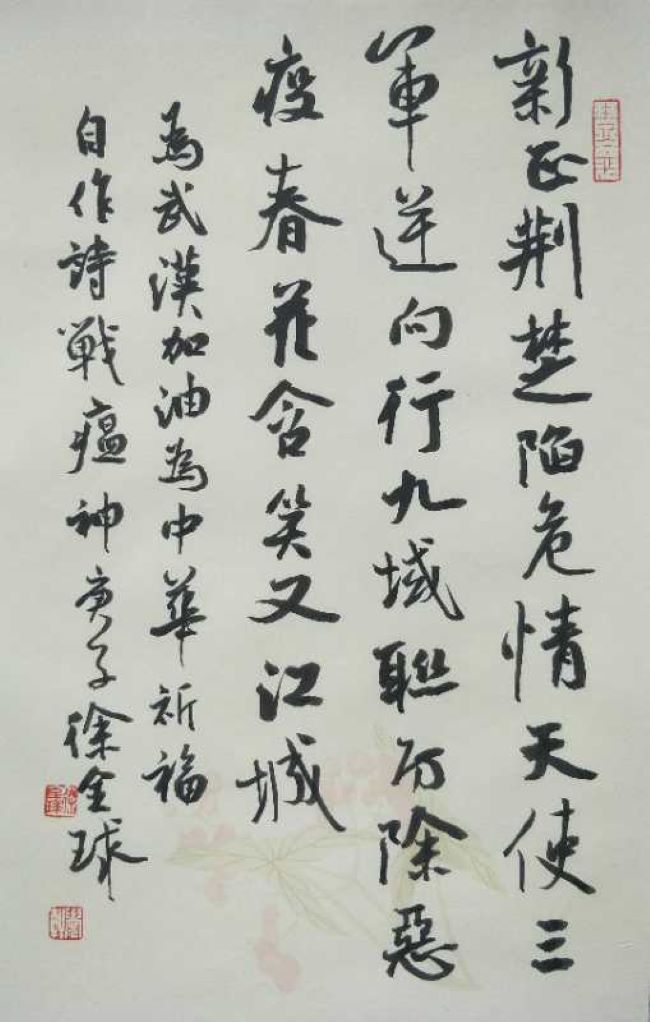 新正荆楚陷危情天使三
軍逆向行九域聯防除惡
疫春花含笑又江城
為武漢加油為中華祈福
自作詩戰瘟神庚子徐金球